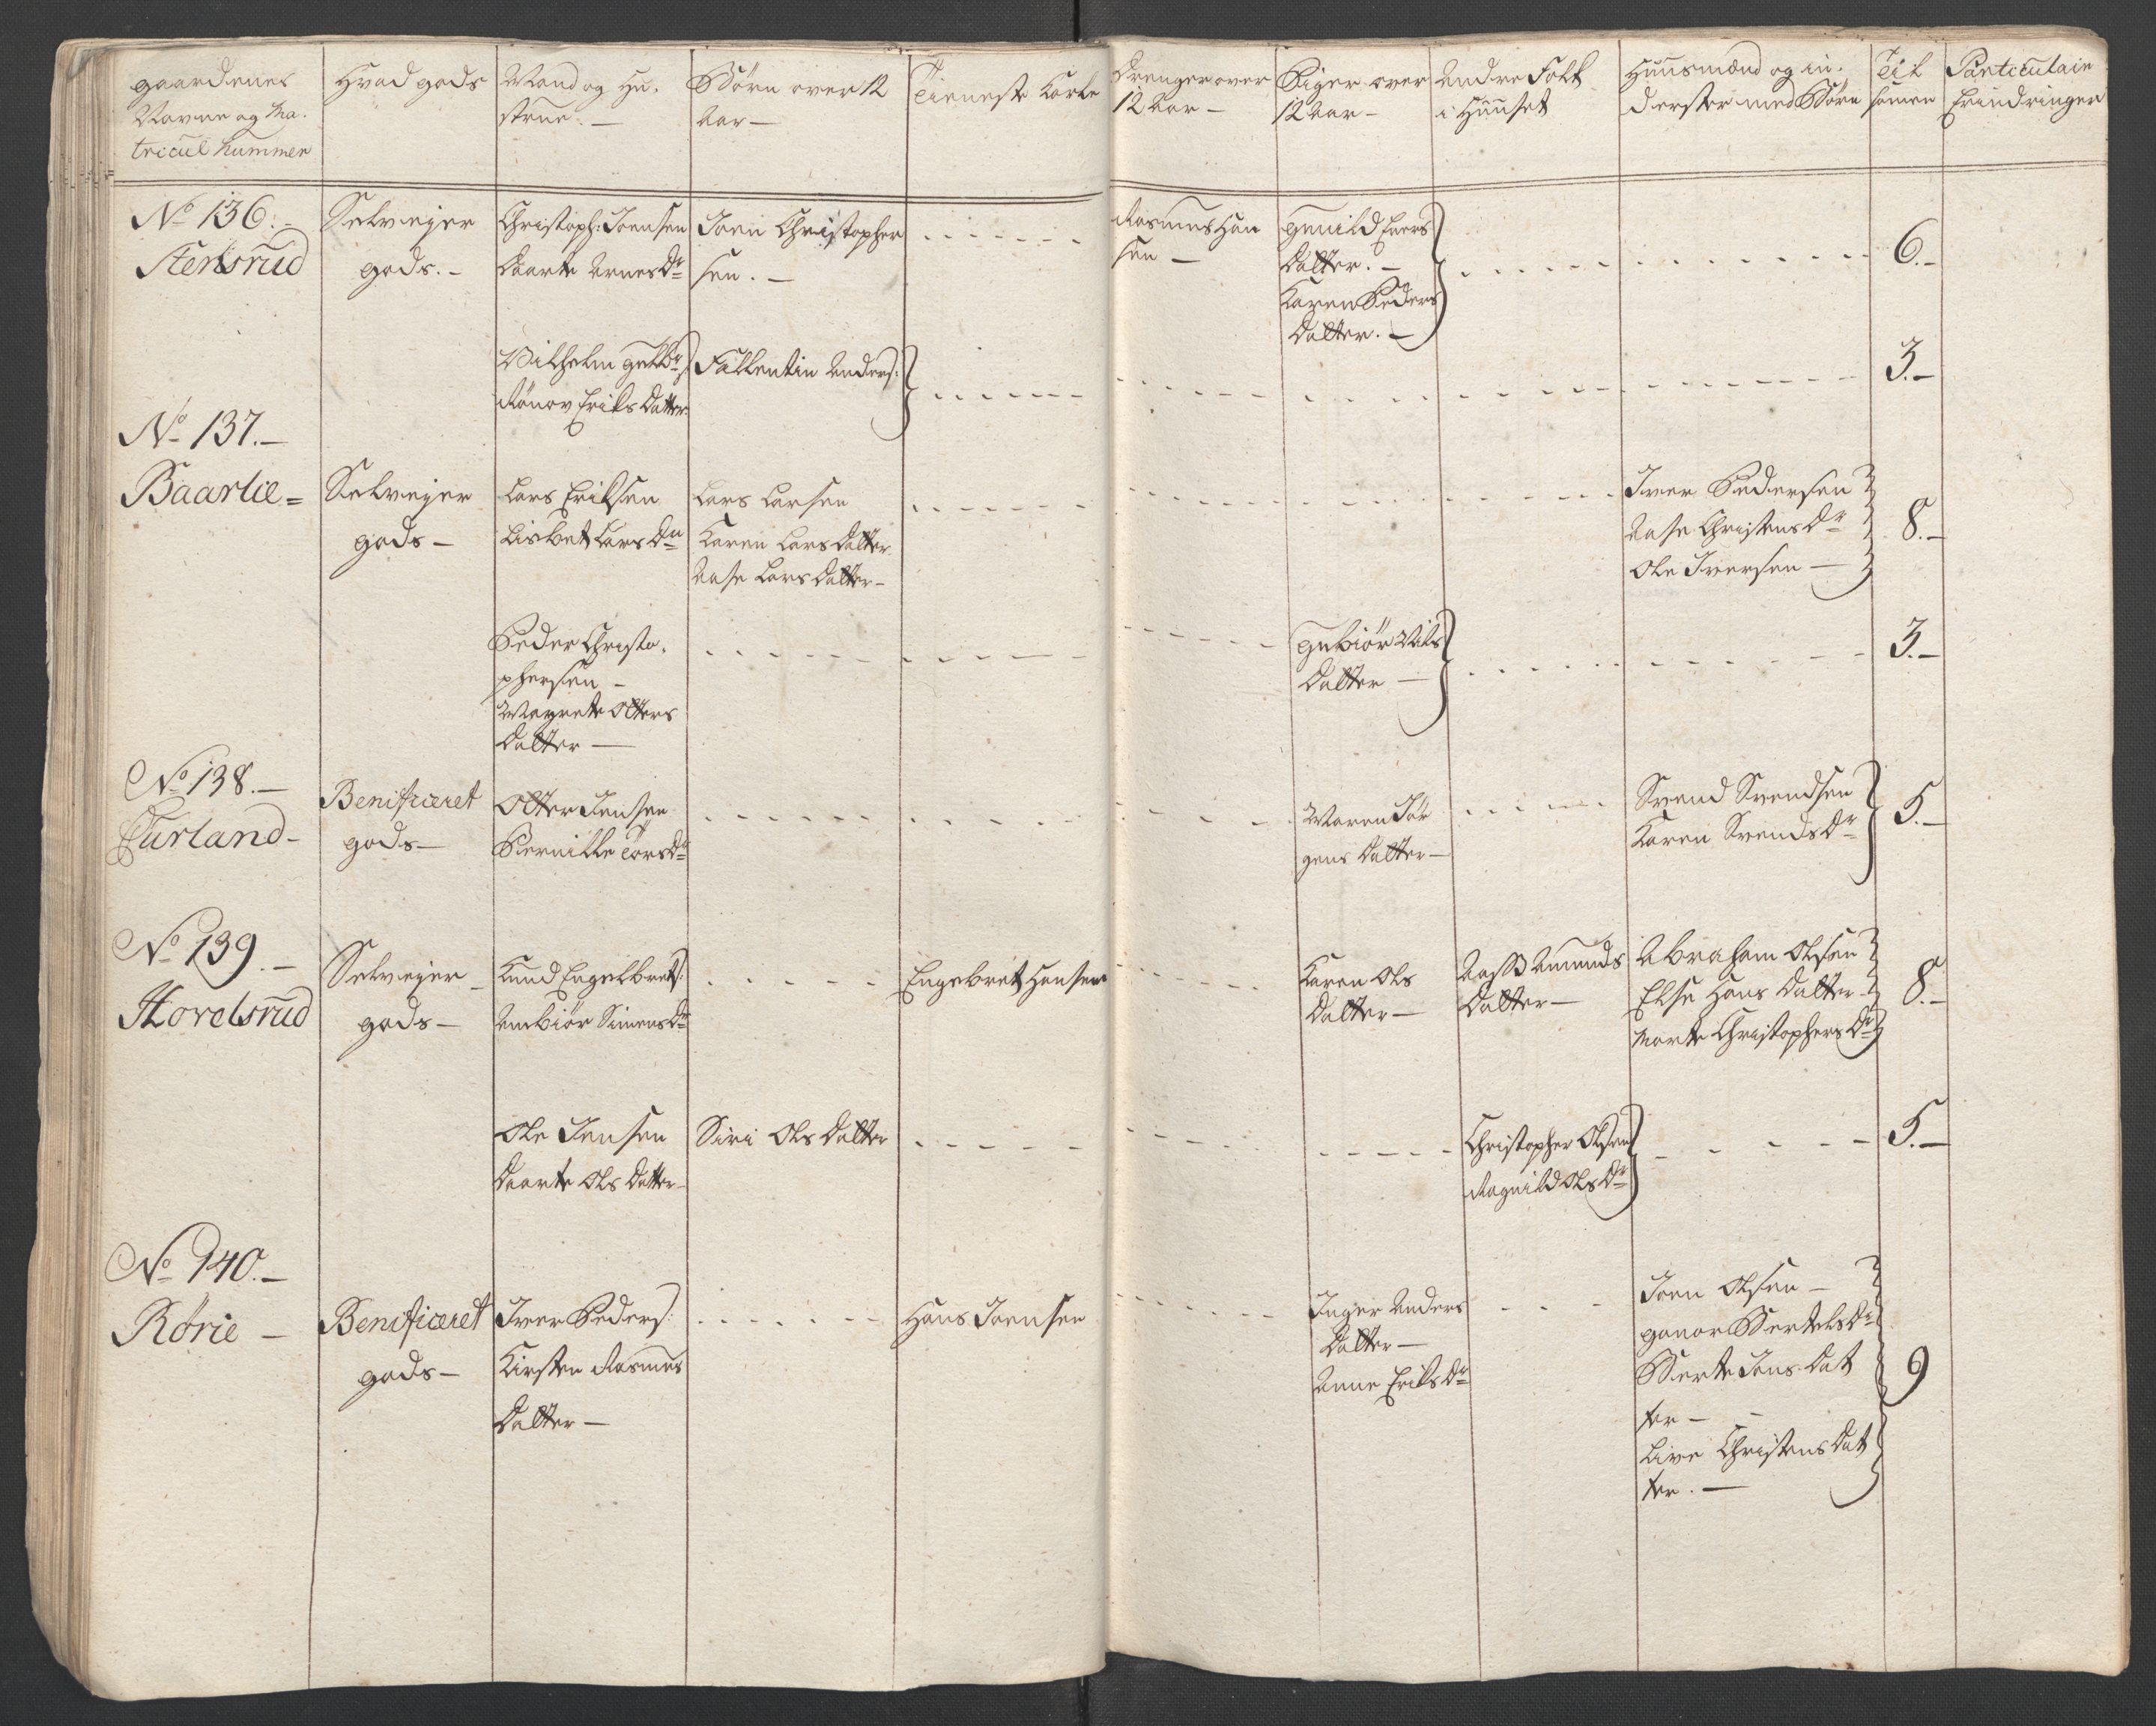 gaardenes
Navne og Ma-
tricul Nummer
Hvad gods
Mand og Hu-
strue. -
Børn over 12
Aar -
Tieneste Karle
Drenger over
12 Aar -
Piger over
12 Aar -
Andre Folk
i Huuset
Huusmænd og in-
derster med Børn
Til
samen
Particulair
Erindringer
No 136. -
Stensrud
Selvejer
gods. -
Christoph: Joensen
Daarte Arnes Dr
Joen Christopher
sen. -
Rasmus Han
sen -
Gunild Evers
Datter. -
Karen Peders
Datter. -
6. -
Vilhelm
Rønov Eriks Datter
Fallentin Anders:
3. -
No 137. -
Baarlie =
Selvejer
gods -
Lars Eriksen
Lisbet Lars Dr
Lars Larsen
Karen Lars Datter
Aase Lars Datter -
Iver Pedersen
Aase Christens Dr
Ole Iversen -
8. -
Peder Christo-
phersen -
Magrete Olters
Datter -
Gubiør Nils
Datter -
3. -
No 138. -
Furland -
Benificeret
gods -
Olter Jensen
Pernille Tors Dr
Maren Jør
gens Datter -
Svend Svendsen
Karen Svends Dr
5. -
No 139. -
Hovelsrud
Selvejer -
gods -
Knud Engelbret:
Ambiør Simens Dr
Engebret Hansen
Karen Ols
Datter -
Aasse Amunds
Datter -
Abraham Olsen
Else Hans Datter -
Marte Christophers Dr
8. -
Ole Jensen
Daarte Ols Datter -
Siri Ols Datter
Christopher Olsen
Ragnild Ols Dr
5. -
No 140. -
Rørie -
Benificeret
gods -
Iver Peders:
Kirsten Rasmus
Datter -
Hans Joensen
Inger Anders
Datter -
Anne Eriks Dr
Joen Olsen -
Gonor Bertels Dr
Berte Jons Dat
ter -
Live Christens Dat
ter. -
9